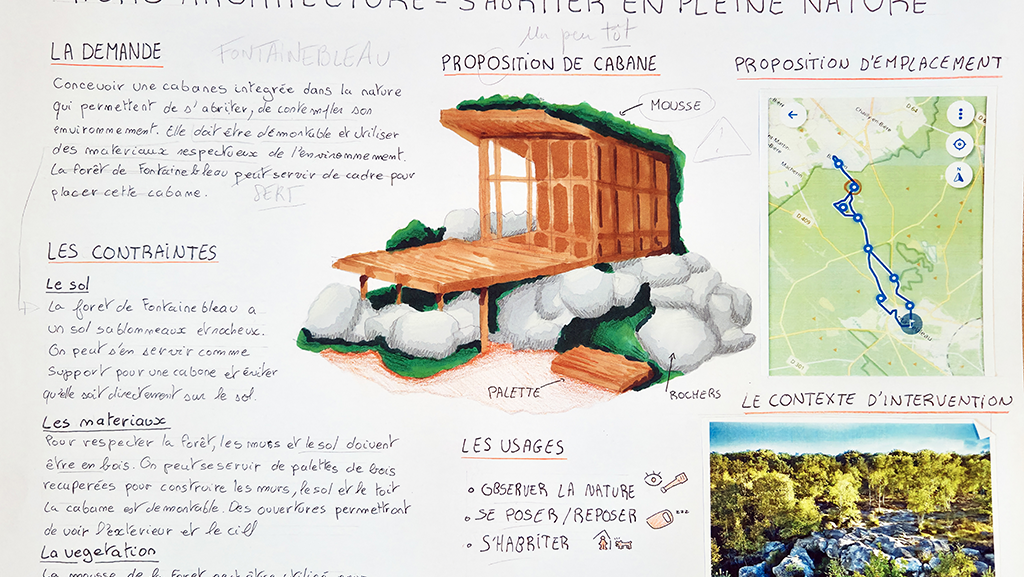 ARCHITECTURE - S'ABRITER EN PLEINE NATURE
LA DEMANDE
FONTAINEBLEAU
Concevoir une cabanes integrée dans la nature
qui permettent de s'abriter, de contempler son
environnement. Elle doit être démontable et utiliser
des materiaux respectueux de l'environnement.
La forêt de Fontainebleau peut servir de cadre pour
placer cette cabane.
SERT
LES CONTRAINTES
Le sol
La foret de Fontainebleau a
un sol sablonneaux et rocheux.
On peut s'en servir comme
support pour une cabane et éviter
qu'elle soit directement sur le sol.
Les materiaux
Pour respecter la forêt, les murs et le sol doivent
être en bois. On peut se servir de palettes de bois
recuperées pour construire les murs, le sol et le toit
La cabane est demontable. Des ouvertures permettront
de voir l'exterieur et le ciel
La vegetation
La mousse de la foret peut être utilisé pour
Un peu tôt
PROPOSITION DE CABANE
MOUSSE
!
PALETTE
ROCHERS
LES USAGES
• OBSERVER LA NATURE
• SE POSER / REPOSER
zzz
• S'HABRITER
PROPOSITION D'EMPLACEMENT
D 64
Chailly-en-Bière
D 409
LE CONTEXTE D'INTERVENTION